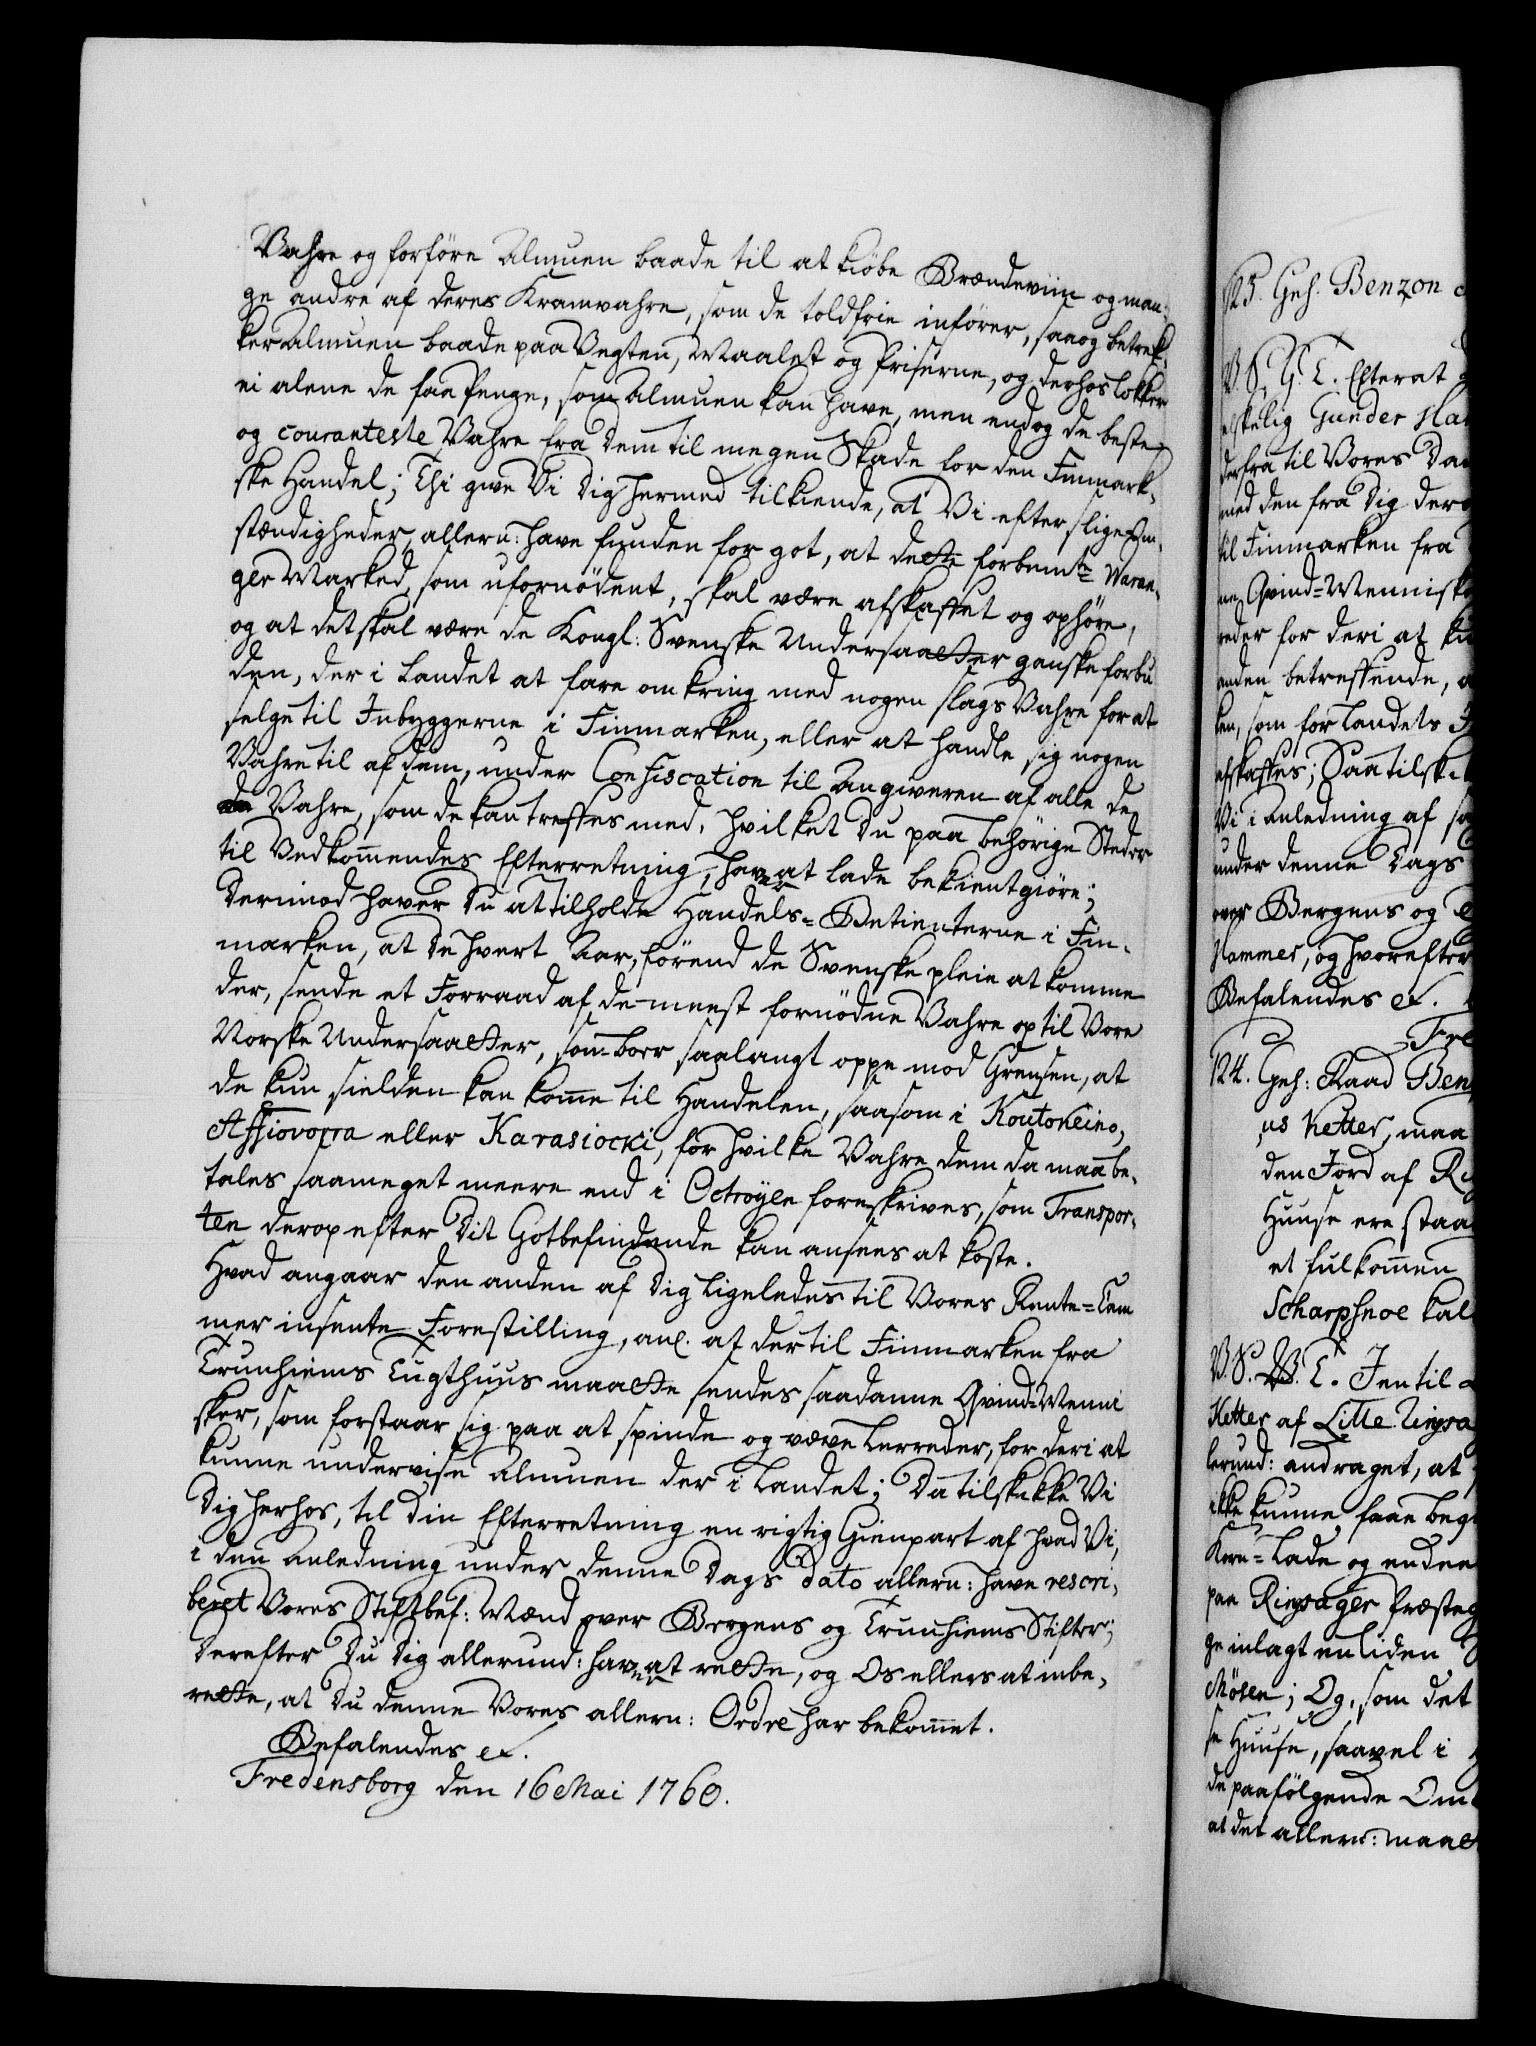 Vahre og forföre Almuen baade til at kiöbe Brændeviin og man-
ge andre af deres Kramvahre, som de toldfrie indfører, saa og betræk-
ker Almuen baade paa Vegten, Maalet og Priserne, og derhos lokker
ei alene de faa Penge, som Almuen kan have, men endog de beste
og couranteste Vahre fra dem til megen Skade for den Finmark-
ske Handel; Thi give Vi dig hermed tilkiende, at Vi efter slige Om-
stændigheder allern: have funden for got, at dette forbemte Waran-
ger Marked, som ufornödent, skal være afskaffet og ophöre,
og at det skal være de Kongl: Svenske Undersaatter ganske forbu
den, der i Landet at fare omkring med nogen slags Vahre for at
selge til Indbyggerne i Finmarken, eller at handle sig nogen
Vahre til af dem, under Confiscation til Angiveren af alle de
Vahre, som de kan treffes med, hvilket Du paa behörige Steder
til Vedkommendes Efterretning, haver at lade bekientgiöre;
Derimod haver Du at tilholde Handels-Betienterne i Fin-
marken, at de hvert Aar, förend de Svenske pleie at komme
der, sende et Forraad af de meest fornödne Vahre op til Vore
Norske Undersaatter, som boer saa langt oppe mod Grensen, at
de kun sielden kan komme til Handelen, saasom i Koutokeino,
Assiovorra eller Karasiocki, for hvilke Vahre dem da maa be-
tales saameget meere end i Octroÿen foreskrives, som Transpor-
ten derop efter Dit Gotbefindende kan ansees at koste.
Hvad angaar den anden af Dig ligeledes til Vores Rente-Cam
mer insente Forestilling, anl. at der til Finmarken fra
Trunhiems Tugthuus maatte sendes saadanne Qvind-Menni
sker, som forstaar sig paa at spinde og væve Lerreder, for deri at
kunne undervise Almuen der i Landet; Da tilskikke Vi
Dig herhos, til Din Efterretning en rigtig Gienpart af hvad Vi,
i den Anledning under denne Dags Dato allern: have rescri-
beret Vores Stiftbef: Mænd over Bergens og Trunhiems Stifter;
Derefter Du dig allerund: haver at rette, og Os ellers at inbe-
rette, at Du denne Vores allern: Ordre har bekommet.
Befalendes etc.
Fredensborg den 16 Mai 1760.
125. Geh. Benzon
V. S. G. T. Efterat
elskelig Gunder Ha
derfra til Vores Da
med den fra Dig der
til Finmarken fra
ne Qvind-Mennisk
reder for deri at ku
anden betreffende,
ken, som for Landets
afskaffes; Saa tilskik
Vi i Anledning af
under denne Dags
over Bergens og
Hammer, og hvorefter
Befalendes etc.
Fre
124. Geh: Raad Ben
us Ketter, maa
den Jord af Ri
Huuse ere staa
et fulkommen
Scharpsnoe kal
V. S. T. Jentil
Ketter af Lille Ringsa
lerund: andraget, at
ikke kunne faae beg
Korn-Lade og en deel
paa Ringsager Præsteg
ge inlagt en liden
Mösen; Og, som det
se Huuse, saavel i
de paafölgende Om
at det allern: maatt